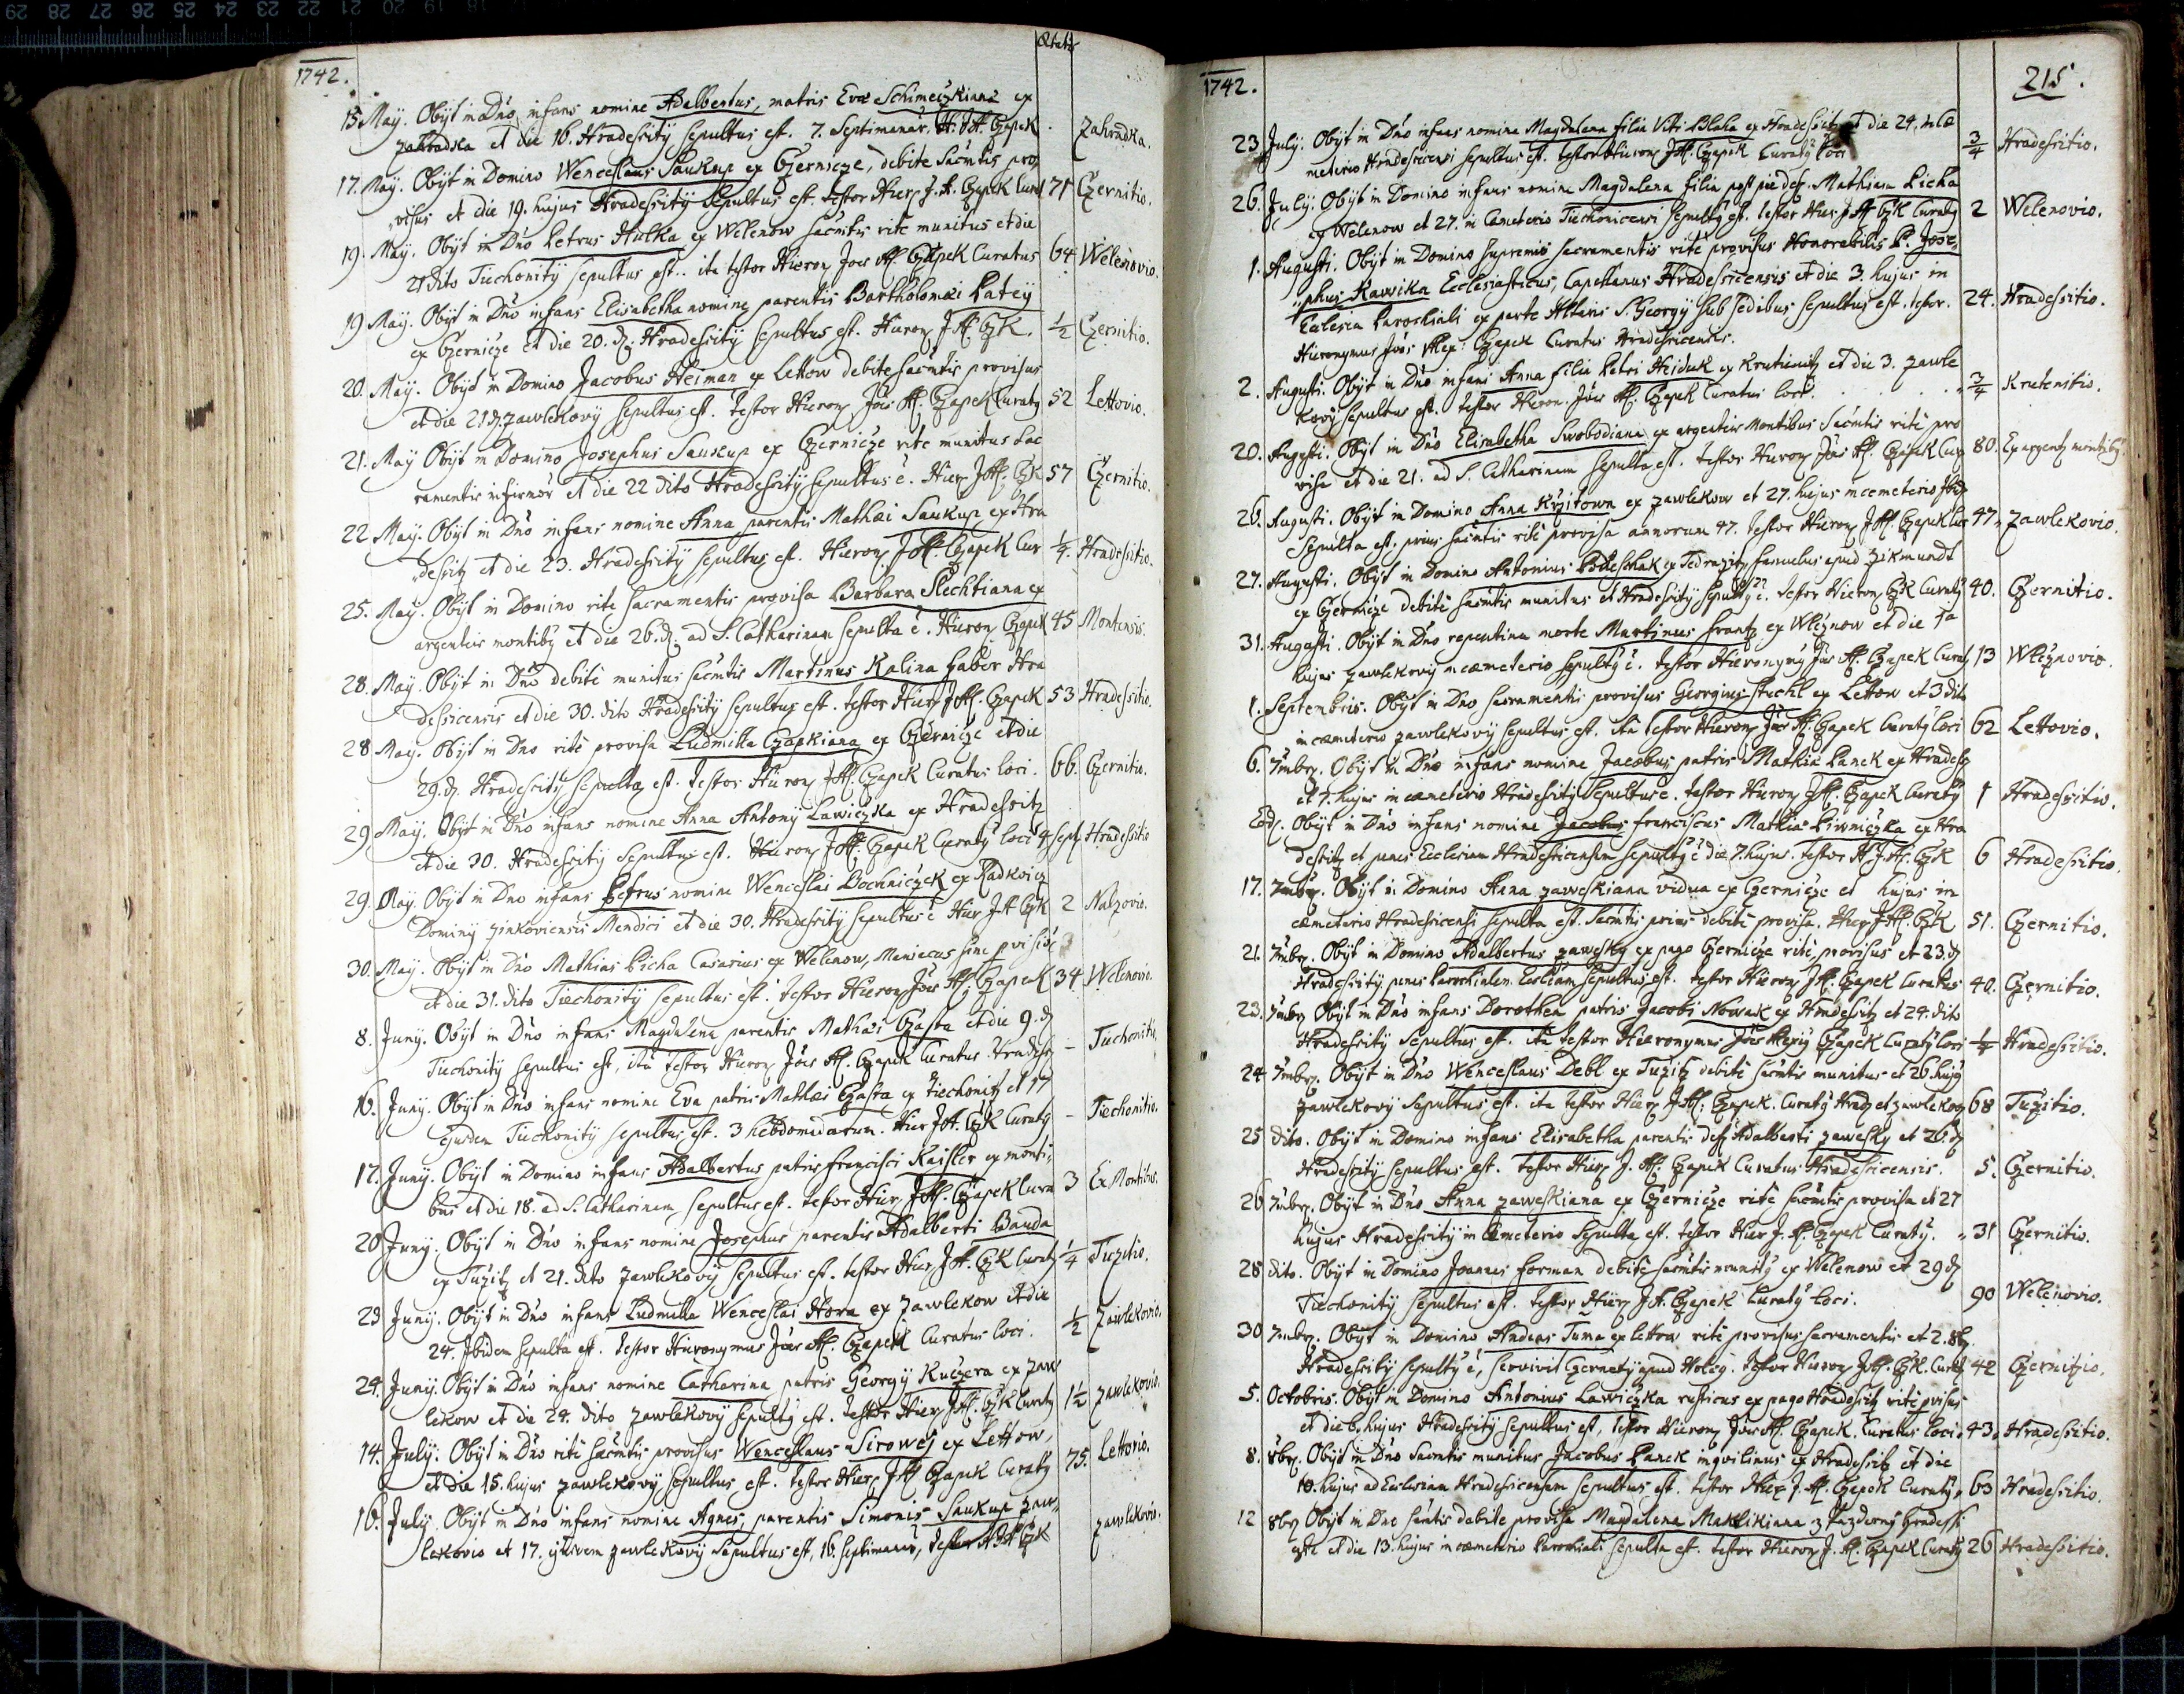 Ætatis
1742.
15 May. Obijt in Dno infans nomine Adalbertus, matris Evæ Schimeczkiana ex
zahradka et die 16. Hradessitij sepultus est. 7. Septimanar. H. J. A. Czapek Zahradka.
17. May. Obijt in Domino Wenceslaus Saukup ex Czernicze, debite Sacmtis pro
visus et die 19. hujus Hradessitij sepultus est. testor Hier. J. A. Czapek Cura 71 Czernitio.
19. May. Obijt in Dno Petrus Hulka ex Welenow sacmtis rite munitus et die
21 dito Tiechonitij sepultus est. ita testor Hieron Joes Al. Czapek Curatus 64 Welenovio.
19 May. Obijt in Dno infans Elisabetha nomine, parentis Bartholomæi Patey
ex Czernicze et die 20. d. Hradessitij sepultus est. Hieron J. Al. Czk. 1/2 Czernitio.
20. May. Obijt in Domino Jacobus Heiman ex Lettow debite sacmtis provisus
et die 21 d. zawlekovij sepultus est. testor Hieron Joes Al. Czapek Curatq 52 Lettovio.
21. May Obijt in Domino Josephus Saukup ex Czernicze rite munitus Sac
ramentis infirmor et die 22 dito Hradessitij sepultus e. Hier J. Al. Czk 57 Czernitio.
22 May. Obijt in Dno infans nomine Anna parentis Mathæi Saukup ex Hra
dessitz et die 23. Hradessitij sepultus est. Hieron J. Al. Czapek Cur 1/4. Hradessitio.
25. May. Obijt in Domino rite sacramentis provisa Barbara Plechtiana ex
argenteis montibq et die 26. d. ad S. Catharinam sepulta e. Hieron Czapek 45 Montensis.
28. May. Obijt in Dno debite munitus sacmtis Martinus Kalina faber Hra
dessicensis et die 30. dito Hradessitij sepultus est. testor Hier J. Al. Czapek 53 Hradessitio.
28 May. Obijt in Dno rite provisa Ludmilla Czapkiana ex Czernicze et die
29. d. Hradessitij sepulta est. testor Hieron J. Al. Czapek Curatus loci. 66. Czernitio.
29 May. Obijt in Dno infans nomine Anna Antonij Lawiczka ex Hradessitz
et die 30. Hradessitij sepultus est. Hieron J. Al. Czapek Curatq loci 4 sept Hradessitio
29. May. Obijt in Dno infans Petrus nomine Wenceslai Bochniczek ex Radkovicz
Dominij zinkoviensis Mendici et die 30. Hradessitij sepultus e Hier J. A. Czk 2 Nalzovio.
30. May. Obijt in Dno Mathias Picha Casarius ex Welenow, Maniacus sine
et die 31. dito Tiechonitij sepultus est. testor Hieron Joes Al. Czapek 34 Welenovio.
8. Junij. Obijt in Dno infans Magdalena parentis Mathæi Czasta et die 9. d
Tiechonitij sepultus est, ita testor Hieron Joes Al. Czapek Curatus Hradess – Tiechonitio.
16. Junij. Obijt in Dno infans nomine Eva patris Mathæi Czasta ex Tiechonitz et 17
ejusdem Tiechonitij sepultus est. 3 hebdomadarum. Hier J. A. Czk Curatq – Tiechonitio.
17. Junij. Obijt in Domino infans Adalbertus patris francisci Kaisler ex monti
bus et die 18. ad S. Catharinam sepultus est. testor Hier. J. Al. Czapek Cura 3 Ex Montibus.
20 Junij. Obijt in Dno infans nomine Josephus parentis Adalberti Bauda
ex Tuzitz et 21. dito zawlekovij sepultus est. testor Hier J. A. Czk Curatq 1/4 Tuzitio.
23 Junij. Obijt in Dno infans Ludmilla Wenceslai Hora ex zawlekow et die
24. Ibidem sepulta est. testor Hieronymus Joes Al. Czapek Curatus loci. 1/2 zawlekovio.
24. Junij. Obijt in Dno infans nomine Catharina patris Georgij Kuczera ex zaw
lekow et die 24. dito zawlekovij sepultq est. testor Hier. J. Al. Czk Curatq 1 1/2 zawlekovio.
14. Julij. Obijt in Dno rite sacmtis provisus Wenceslaus Sirowej ex Lettow,
et die 15. hujus zawlekovij sepultus est. testor Hier J. Al. Czapek Curatq 75. Lettovio.
16. Julij Obijt in Dno infans nomine Agnes, parentis Simonis Saukup zaw
lekovio et 17. ejusdem zawlekovij sepultus est, 16. septimanar, testor H. J. A. Czk zawlekovio.
1742. 215.
23 Julij. Obijt in Dno infans nomine Magdalena filia Viti Blaha ex Hradessitz et die 24. in cæ
meterio Hradessicensi sepultus est. testor Hieron J. Al. Czapek Curatq loci 3/4 Hradessitio.
26. Julij. Obijt in Domino infans nomine Magdalena filia post pie def. Mathiam Picha
ex Welenow et 27. in Cæmeterio Tiechonicensi sepultq est. testor Hier J. Al. Czk Curatq 2 Welenovio.
1. Augusti. Obijt in Domino supremis sacramentis rite provisus Honorabilis P. Jose
phus Kawika Ecclesiasticus, Capellanus Hradessicensis et die 3. hujus in
Ecclesia Parochiali ex parte Altaris S. Georgij sub sedibus sepultus est. testor. 24. Hradessitio.
Hieronymus Joes Alex: Czapek Curatus Hradessicensis.
2. Augusti. Obijt in Dno infans Anna filia Petri Heiduk ex Krutienitz et die 3. zawle
kovij sepultus est. testor Hieron. Joes Al. Czapek Curatus loci. 3/4 Krutenitio.
20. Augusti. Obijt in Dno Elisabetha Swobodiana ex argenteis Montibus Sacmtis rite pro
visa et die 21. ad S. Catharinam sepulta est. testor Hieron Joes Al. Czapek Cur 80. Ex argenteis montibq
26. Augusti. Obijt in Domino Anna Krzitowa ex zawlekow et 27. hujus in cemeterio Ibid
sepulta est. prius sacmtis rite provisa annorum 47. testor Hieron J. Al. Czapek Cur 47. zawlekovio.
27. Augusti. Obijt in Domino Antonius ex Tedrazitz famulus apud zikmundt
ex Czernicze debite sacmtis munitus et Hradessitij sepultq e. testor Hieron Czk Curatq 40. Czernitio.
31. Augusti. Obijt in Dno repentina morte Martinus frantz ex Wleznow et die 1a
hujus zawlekovij in cæmeterio sepultq e. testor Hieronymq Joes Al. Czapek Curatq 13 Wleznovio.
1. Septembris. Obijt in Dno sacramentis provisus Georgius stuchl ex Lettow et 3 dito
in cæmeterio zawlekovij sepultus est. ita testor Hieron Joes Al. Czapek Curatq loci 62 Lettovio.
6. 7mbr. Obijt in Dno infans nomine Jacobus patris Mathiæ Panek ex Hradess
et 7. hujus in cæmeterio Hradessitij sepultus e. testor Hieron J. Al. Czapek Curatq 1 Hradessitio.
Eod. Obijt in Dno infans nomine Jacobus franciscus Mathiæ Piwniczka ex Hra
dessitz et penes Ecclesiam Hradessicensem sepultq e die 7. hujus. testor H. J. Al. Czk 6 Hradessitio.
17. 7mbr. Obijt in Domino Anna zaweskiana vidua ex Czernicze et hujus in
cæmeterio Hradessicensi sepulta est. sacmtis prius debite provisa. Hier J. Al. Czk 51. Czernitio.
21. 7mbr. Obijt in Domino Adalbertus zawesky ex pago Czernicze rite provisus et 23. d
Hradessitij penes Parochialem Eccliam sepultus est. testor Hieron J. Al. Czapek Curatus 40. Czernitio.
23. 7mbr Obijt in Dno infans Dorothea patris Jacobi Nowak ex Hradessitz et 24. dito
Hradessitij sepultus est. ita testor Hieronymus Joes Alexiq Czapek Curatq loci 1/4 Hradessitio.
24 7mbr. Obijt in Dno Wenceslaus Debl ex Tuzitz debite sacmtis munitus et 26. hujq
zawlekovij sepultus est. ita testor Hier J. Al. Czapek. Curatq Hrad. et zawlekov. 68 Tuzitio.
25 dito. Obijt in Domino infans Elisabetha parentis def. Adalberti zawesky et 26. d
Hradessitij sepultus est. testor Hier J. Al. Czapek Curatus Hradessicensis. 5. Czernitio.
26 7mbr. Obijt in Dno Anna zaweskiana ex Czernicze rite sacmtis provisa et 27
hujus Hradessitij in Cæmeterio sepulta est. testor Hier J. A. Czapek Curatq. 31 Czernitio.
28 dito. Obijt in Domino Joannes forman debite sacmtis munitq ex Welenow et 29 d
Tiechonitij sepultus est. testor Hier J. A. Czapek Curatq loci. 90 Welenovio.
30 7mbr. Obijt in Domino Andreas Tuma ex Lettow rite provisus sacramentis et 2. 8br.
Hradessitij sepultq e, servivit Czernetij apud Holeg. testor Hieron J. Al. Czk. Curatq 42 Czernitio.
5. Octobris. Obijt in Domino Antonius Lawiczka rusticus ex pago Hradessitz rite pvisus
et die 6. hujus Hradessitij sepultus est, testor Hieron Joes Al. Czapek. Curatus loci. 43. Hradessitio.
8. 8br. Obijt in Dno sacmtis munitus Jacobus Panek inqvilinus ex Hradessitz et die
10. hujus ad Ecclesiam Hradessicensem sepultus est. testor Hier J. Al. Czapek Curatq. 63 Hradessitio.
12 8br Obijt in Dno sacmtis debite provisa Magdalena Maklikiana z hradessi
czke et die 13. hujus in cæmeterio Parochiali sepulta est. testor Hieron J. Al. Czapek Curatq 26 Hradessitio.